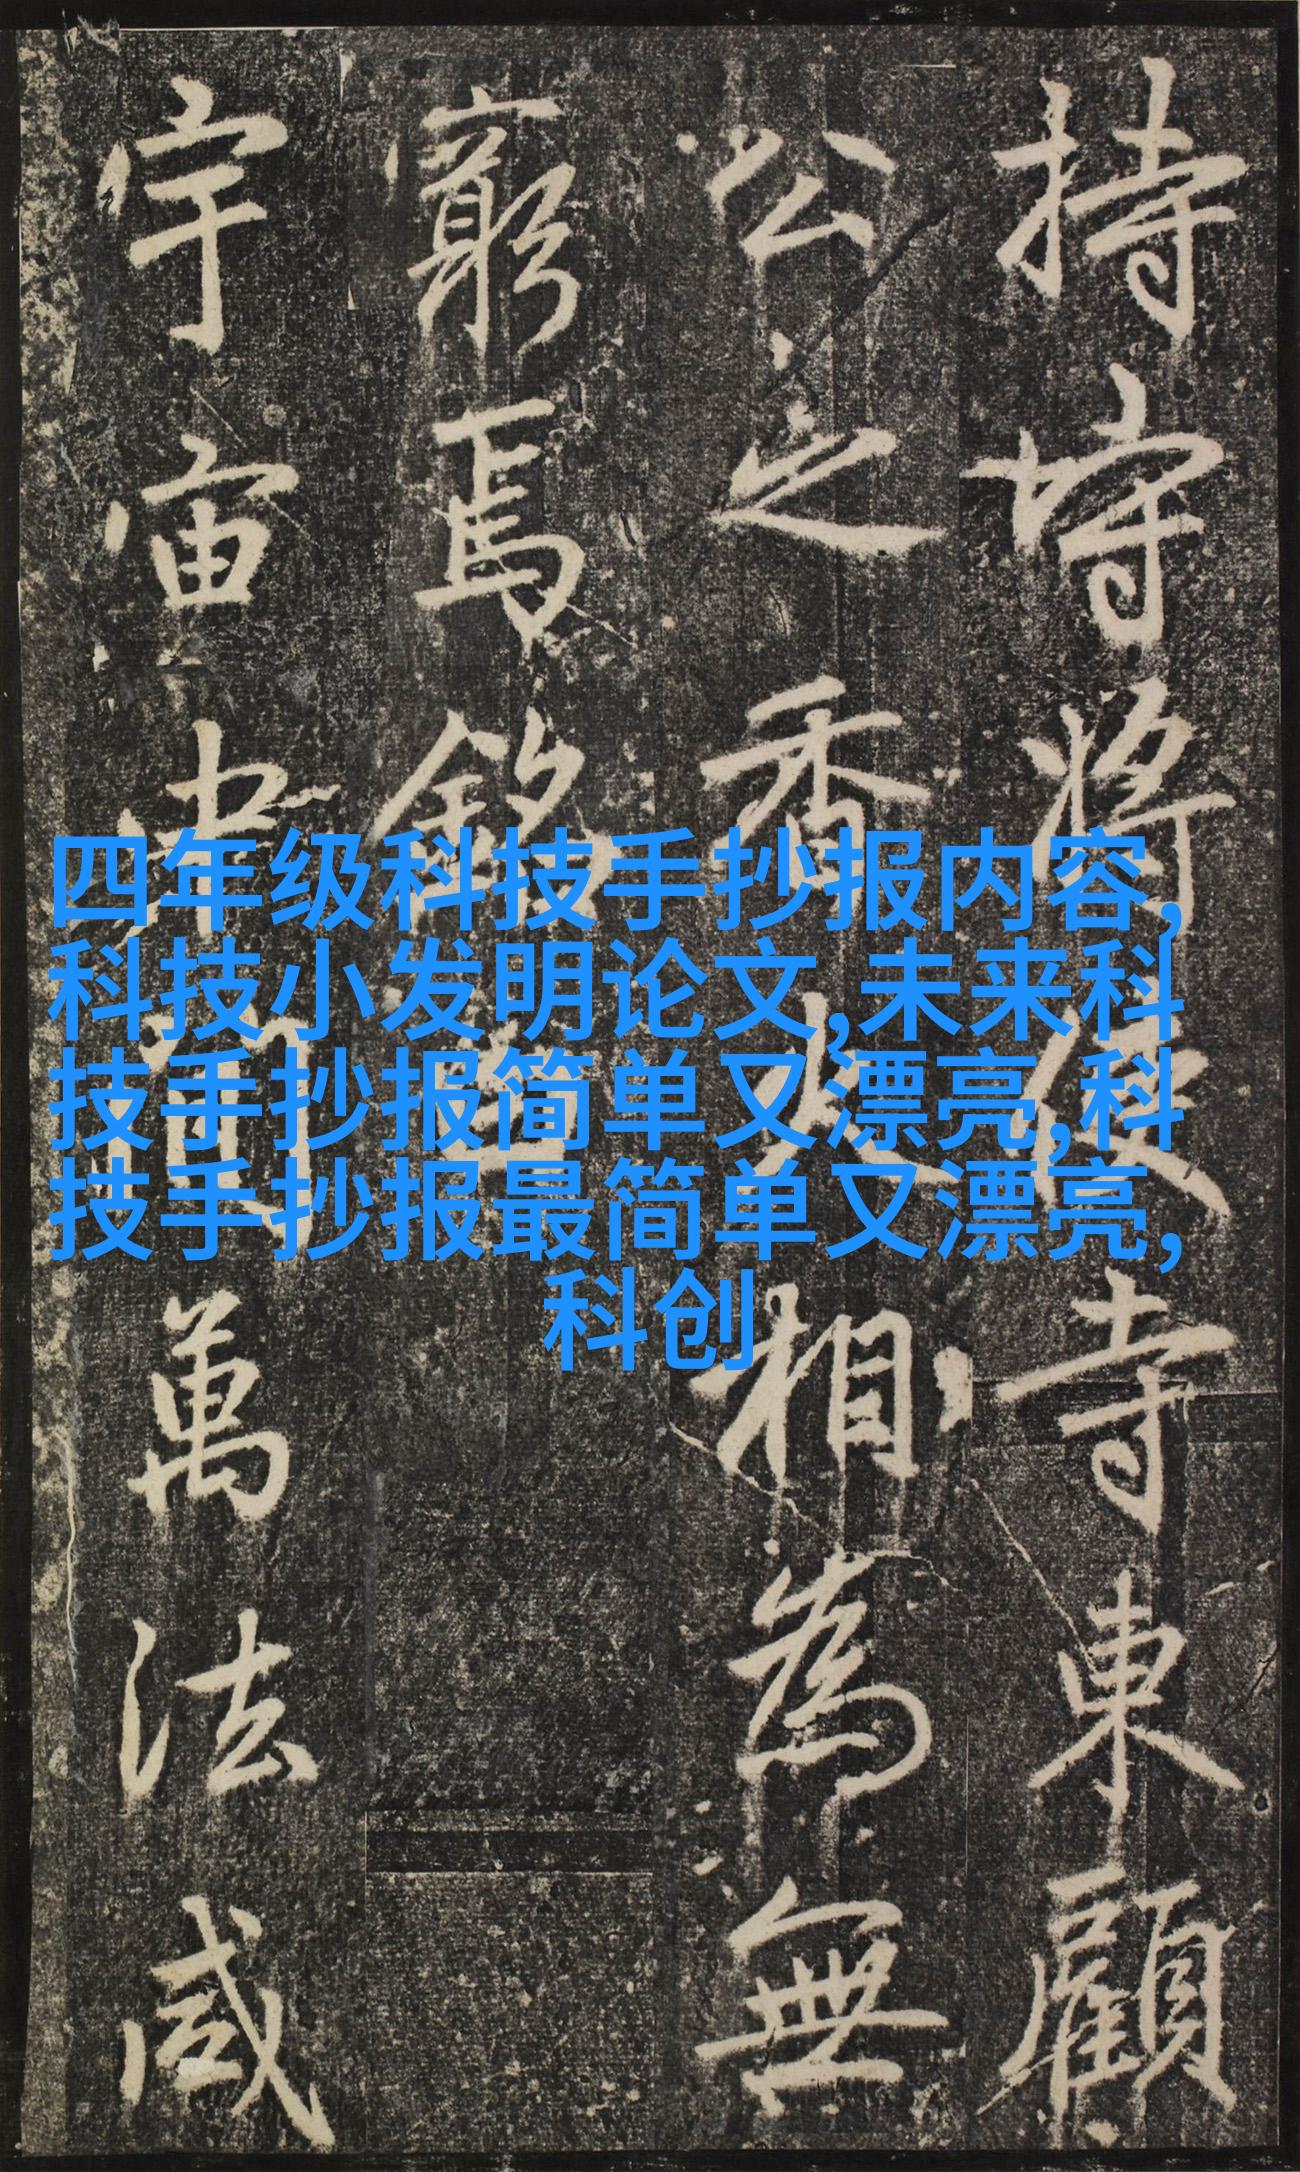 持將使寺東顧
公之香火相為無
窮焉銘曰
宇宙間萬法咸
四年级科技手抄报内容,
科技小发明论文,未来科
技手抄报简单又漂亮,科
技手抄报最简单又漂亮,
科创